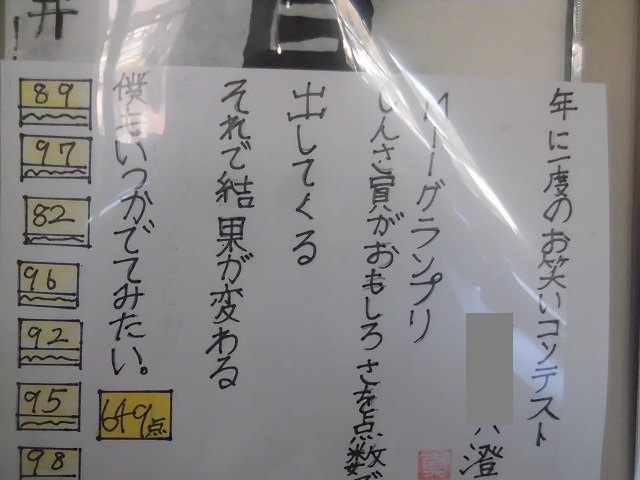 年に一度のお笑いコンテスト
澄
M-1グランプリ
しんさ員がおもしろさを点数で
出してくる
それで結果が変わる
僕もいつかでてみたい。
89
97
82
96
92
95
98
649点